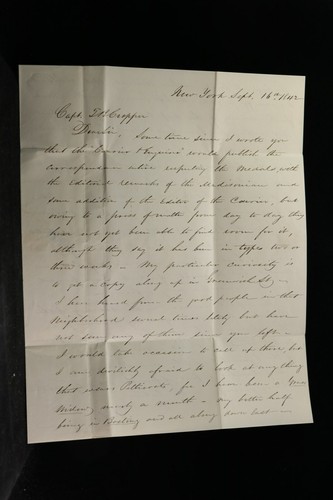 New York Sept. 16th 1842
Capt. Cropper
Dear Sir, Some time since I wrote you
that the Courier & Enquirer would publish the
correspondence entire respecting the Medals, with
the Editorial remarks of the Madisonian and
some addition of the Editor of the Courier, but
owing to a press of matter from day to day they
have not yet been able to find room for it,
although they say it has been in types two or
three weeks. My particular curiosity is
to get a copy along up in Greenwich St.
I have heard from the good people in that
Neighborhood several times lately but have
not seen any of them since you left.
I would take occasion to call up there, but
I am devilishly afraid to look at any thing
that wears Petticoats, for I have been a Grass
Widow, nearly a month - my better half
being in Boston and all along down east